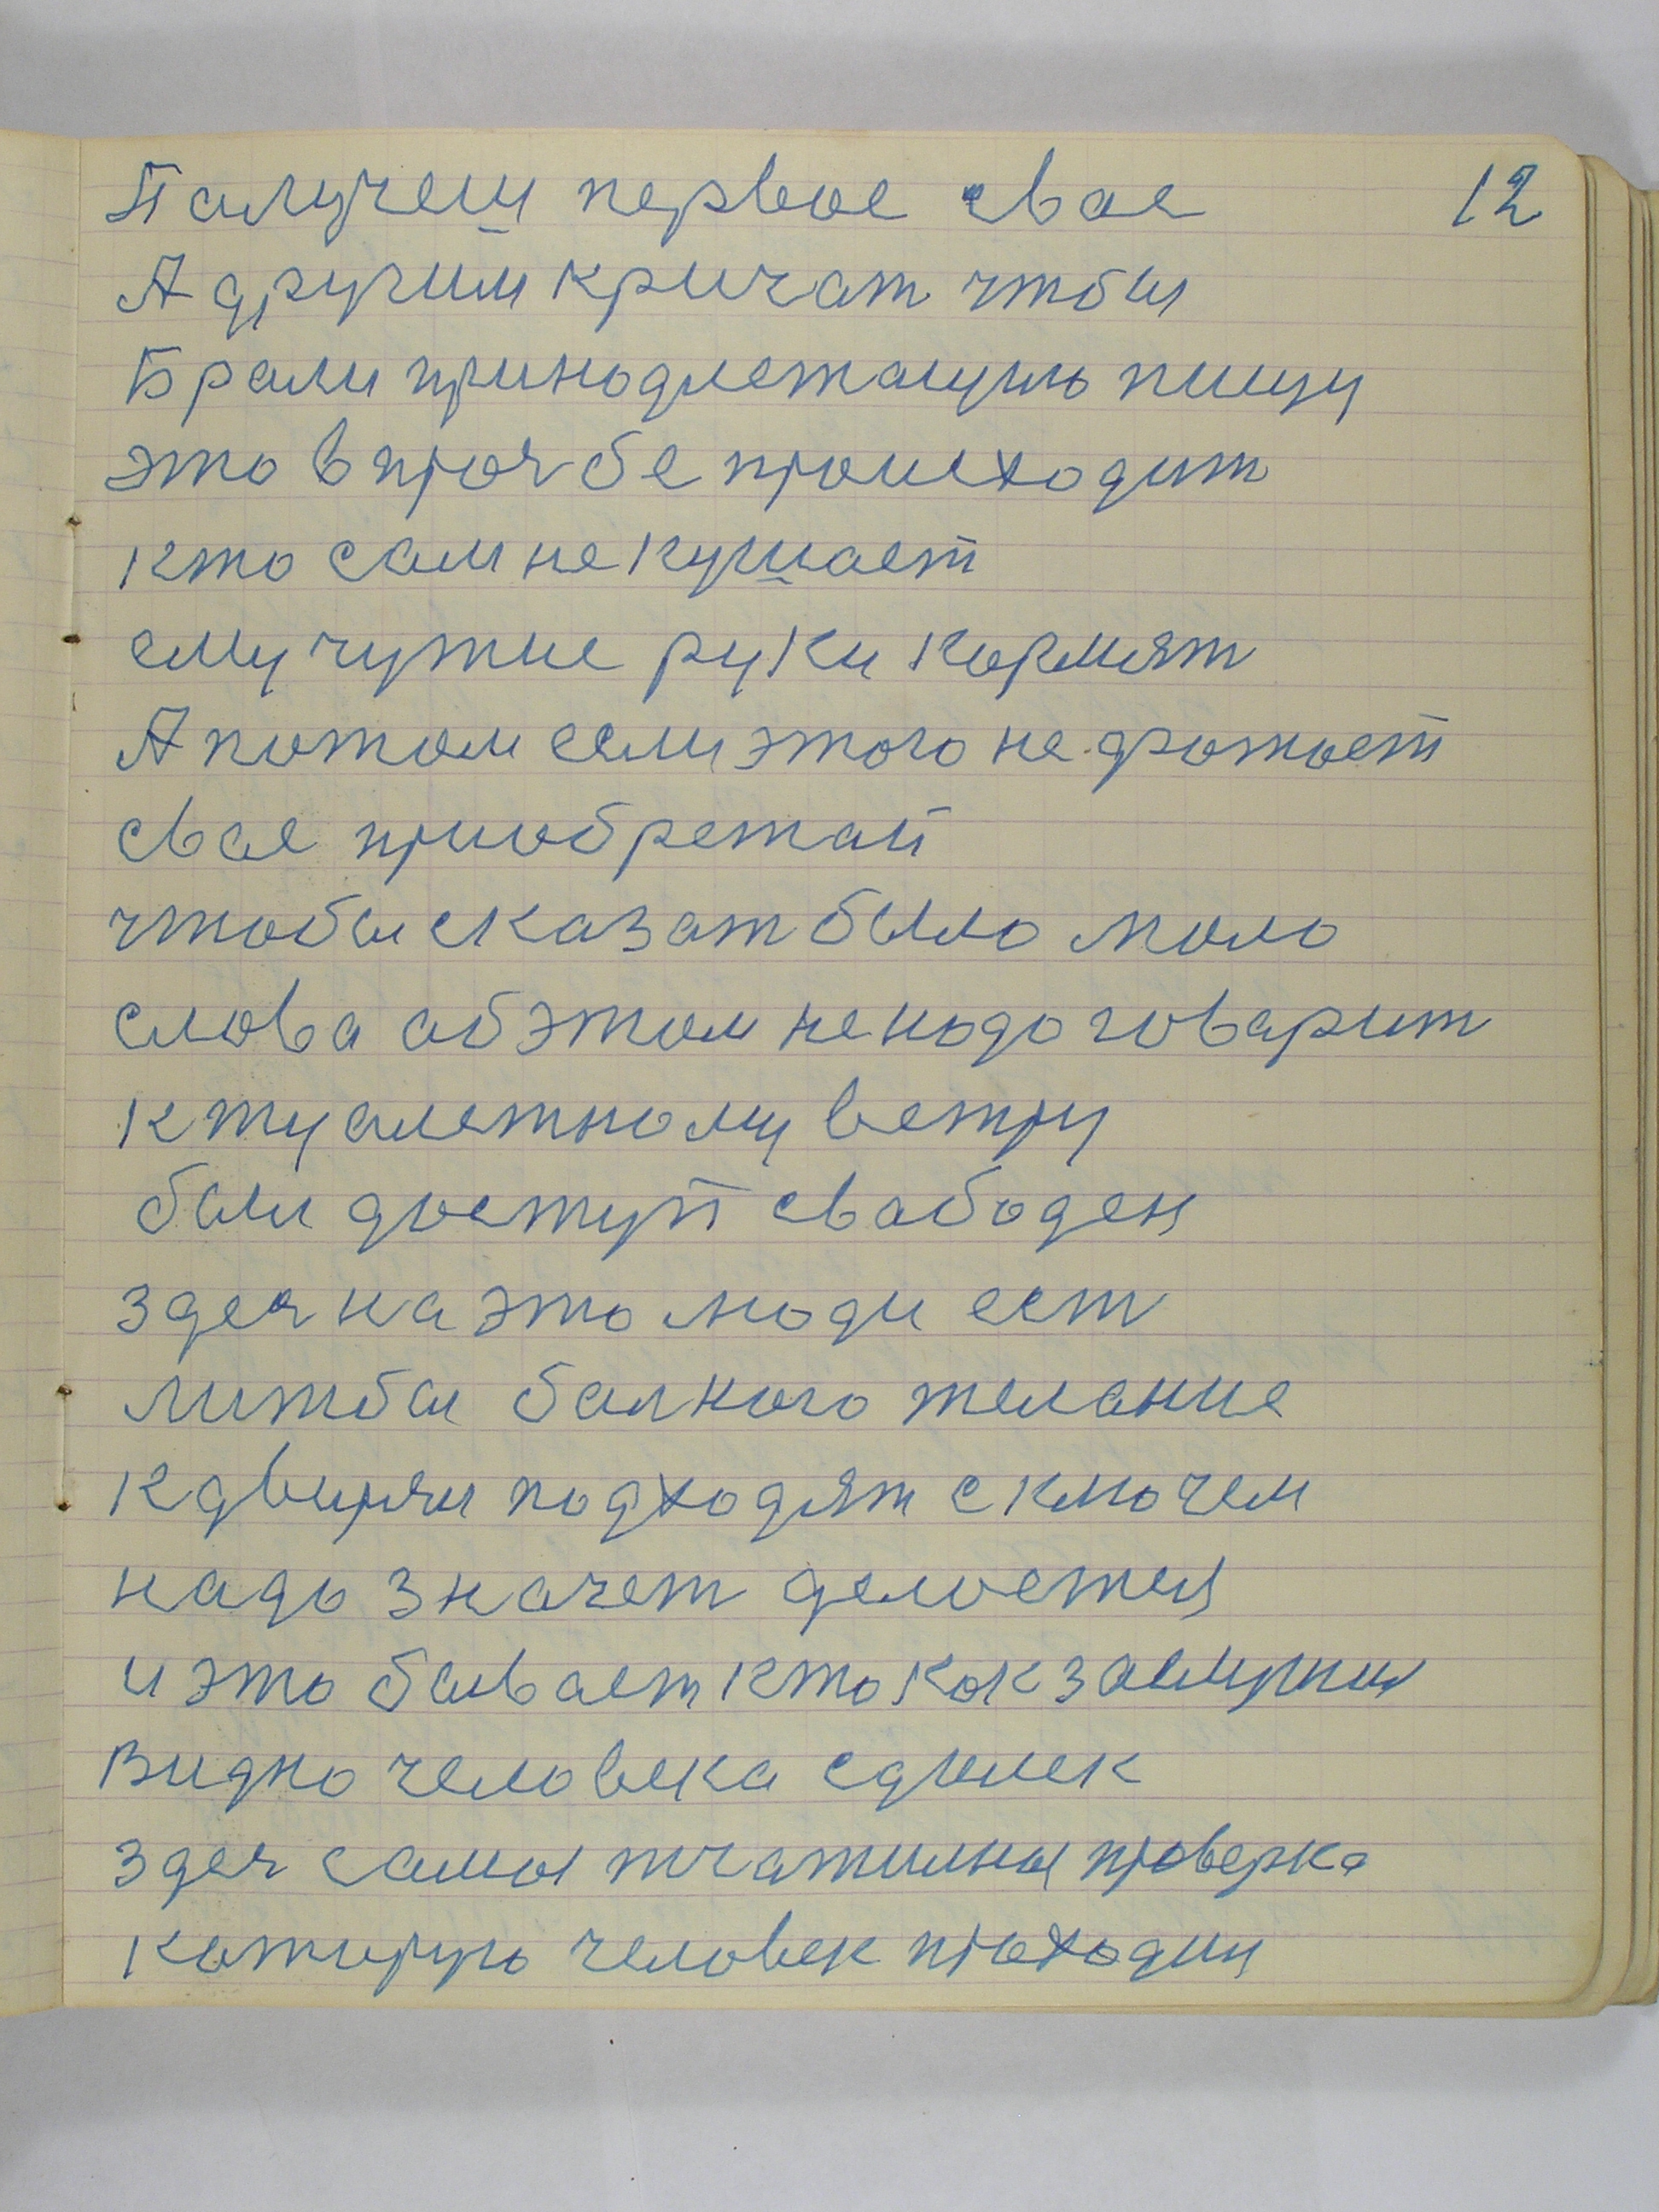 Палучеш первое свае 12
А другим кричат чтбы
Брали принодлежащую пищу
это впрозбе происходит
кто сам не кушает
ему чужие руки кормят
А потом если этого не хватает
свае приобретай
чтобы сказат было мало
слова об этом ненадо говарит
к туалетному ветру
был доступ свабоден
здес на это люди ест
лижбы был ного желание
К двирям подходят с ключем
надо значет делостся
и это бывает кто как заслужил
Видно человека сдилек
здес самоя тчатилноя проверка
которую человек проходит